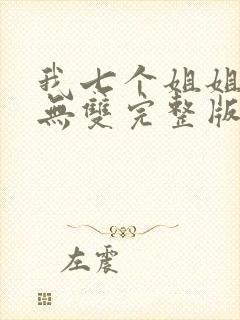 我七个姐姐
無雙完整版
左震